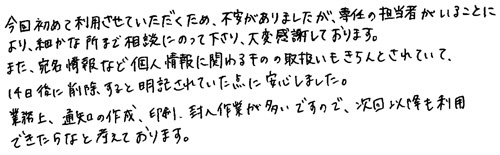 今回初めて利用させていただくため、不安がありましたが、専任の担当者がいることに
より、細かな所まで相談にのって下さり、大変感謝しております。
また、宛名情報など個人情報に関わるものの取扱いもきちんとされていて、
14日後に削除すると明記されていた点に安心しました。
業務上、通知の作成、印刷、封入作業が多いですので、次回以降も利用
できたらなと考えております。